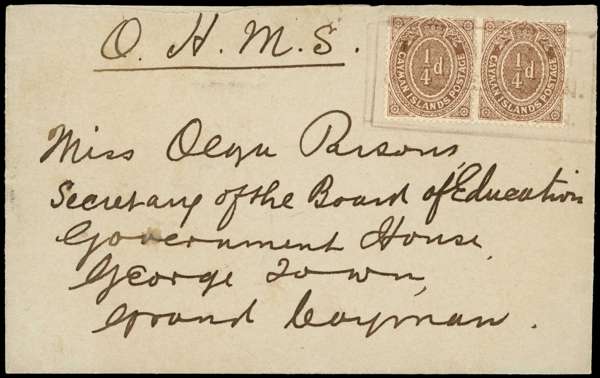 O. H. M. S.
1/4 d
CAYMAN ISLANDS POSTAGE
1/4 d
CAYMAN ISLANDS POSTAGE
Miss Parsons,
Secretary of the Board of Education
Government House,
George Town,
Grand Cayman.